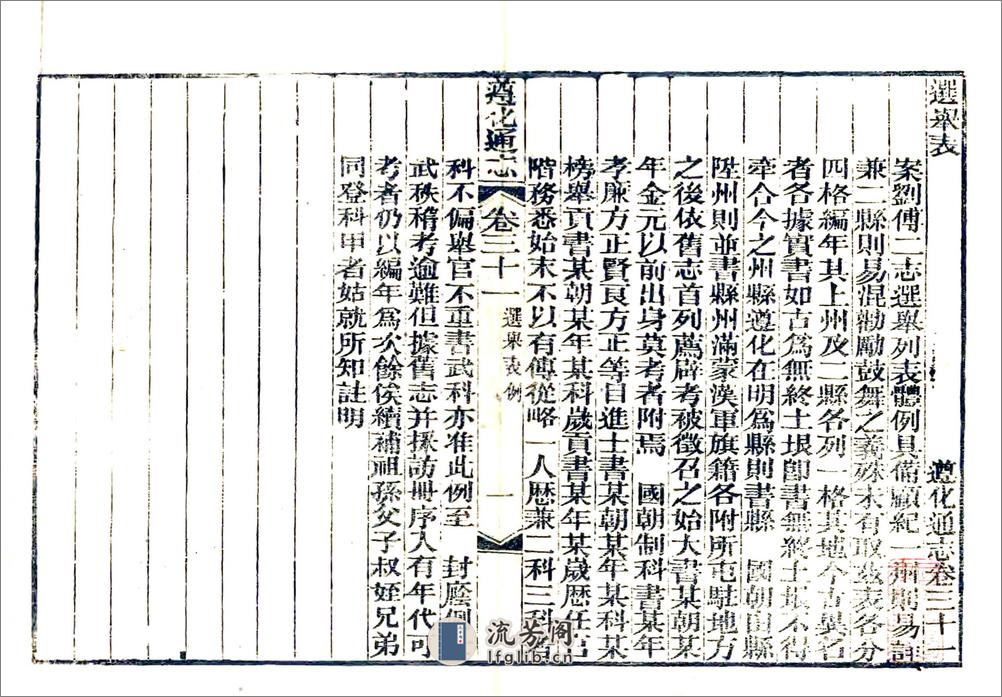 選舉表 遵化通志卷三十一
案劉傅二志選舉列表體例具備顧紀一州則易詳
兼二縣則易混勸勵鼓舞之義殊未有取茲表各分
四格編年其上州及二縣各列一格其地今古異名
者各據實書如古為無終土垠卽書無終土垠不得
牽合今之州縣遵化在明為縣則書縣 國朝由縣
陞州則並書縣州滿蒙漢軍旗籍各附所屯駐地方
之後依舊志首列薦辟考被徵召之始大書某朝某
年金元以前出身莫考者附焉 國朝制科書某年
孝廉方正賢良方正等目進士書某朝某年某科某
榜舉貢書某朝某年某科歲貢書某年某歲歷任官
階務悉始末不以有傳從略一人歷兼二科三科各
遵化通志 卷三十一 選舉表例 一
科不偏舉官不重書武科亦准此例至 封廕例
武秩稽考逾難但據舊志并採訪冊序入有年代可
考者仍以編年為次餘俟續補祖孫父子叔姪兄弟
同登科甲者姑就所知註明
流芳阁
lfglib.cn